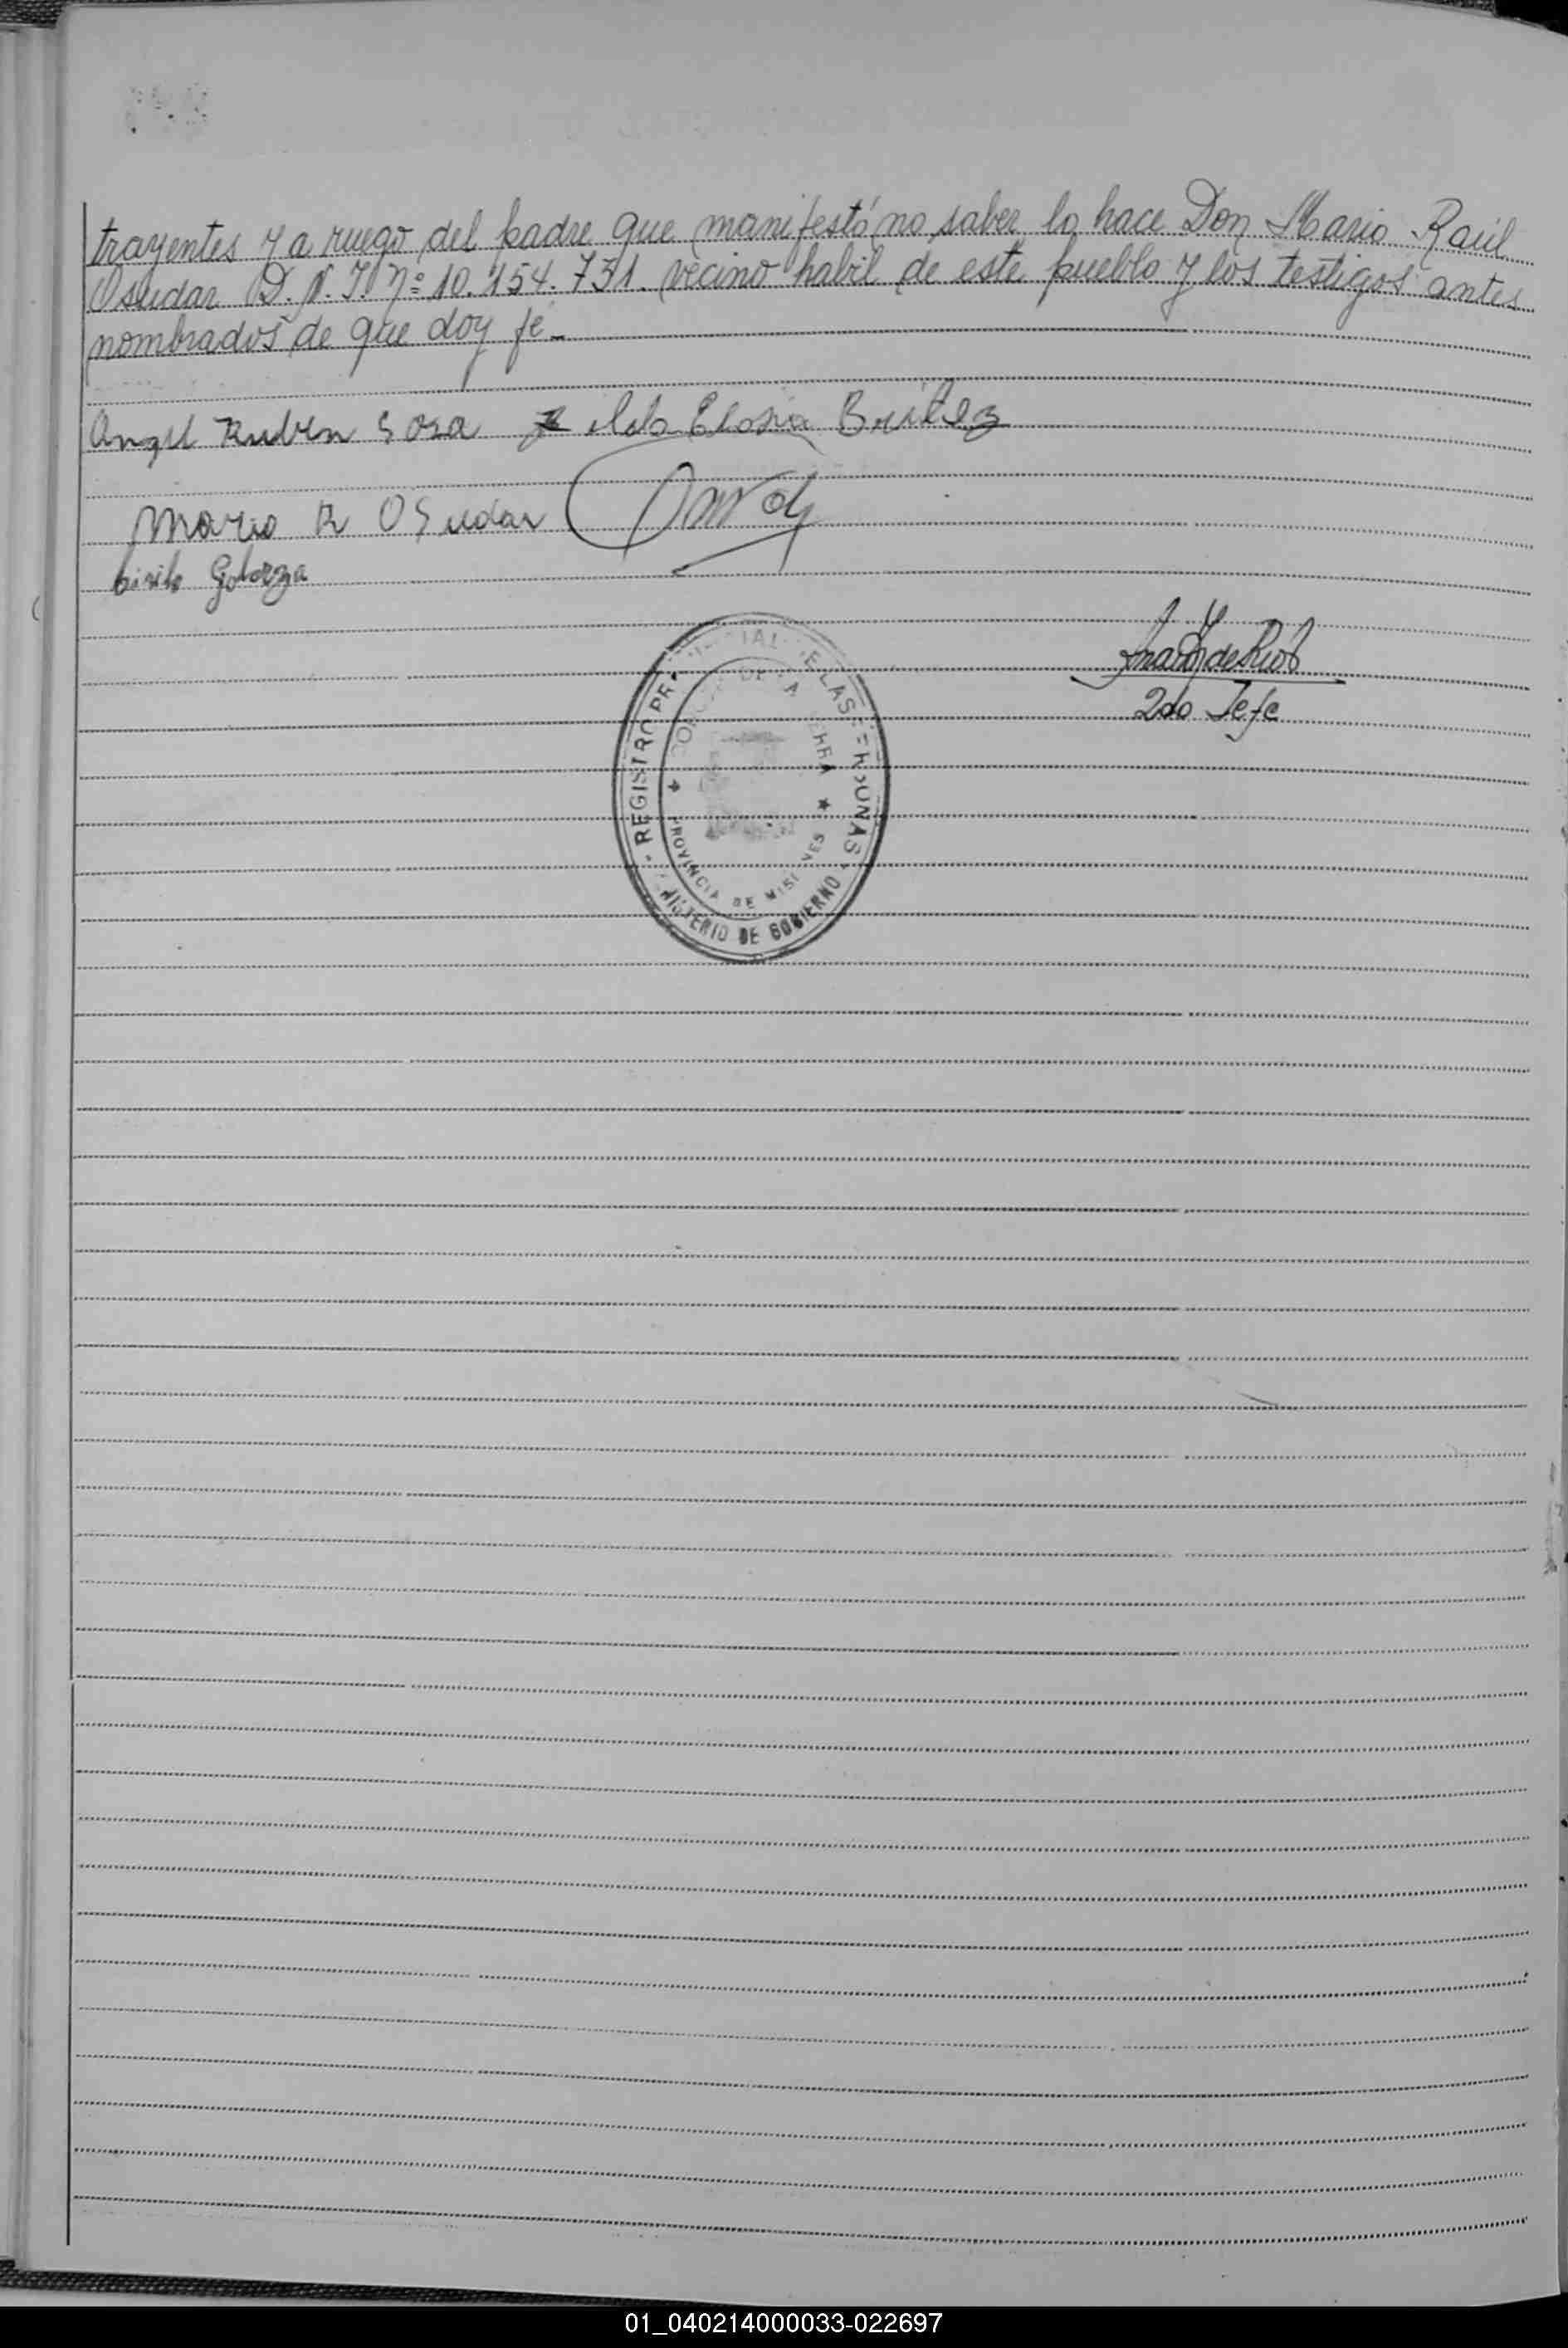 trayentes y a ruego del padre que manifestó no saber lo hace Don Mario Raúl
Osudar D.N.I. Nº 10.154.731. vecino habil de este pueblo y los testigos antes
nombrados de que doy fe.-
Angel Ruben Sosa Ilda Elosia Britez
Mario R Osudar
Cirilo Golarza
2do Jefe
REGISTRO PROVINCIAL DE LAS PERSONAS
PROVINCIA DE MISIONES
MINISTERIO DE GOBIERNO
01_040214000033-022697